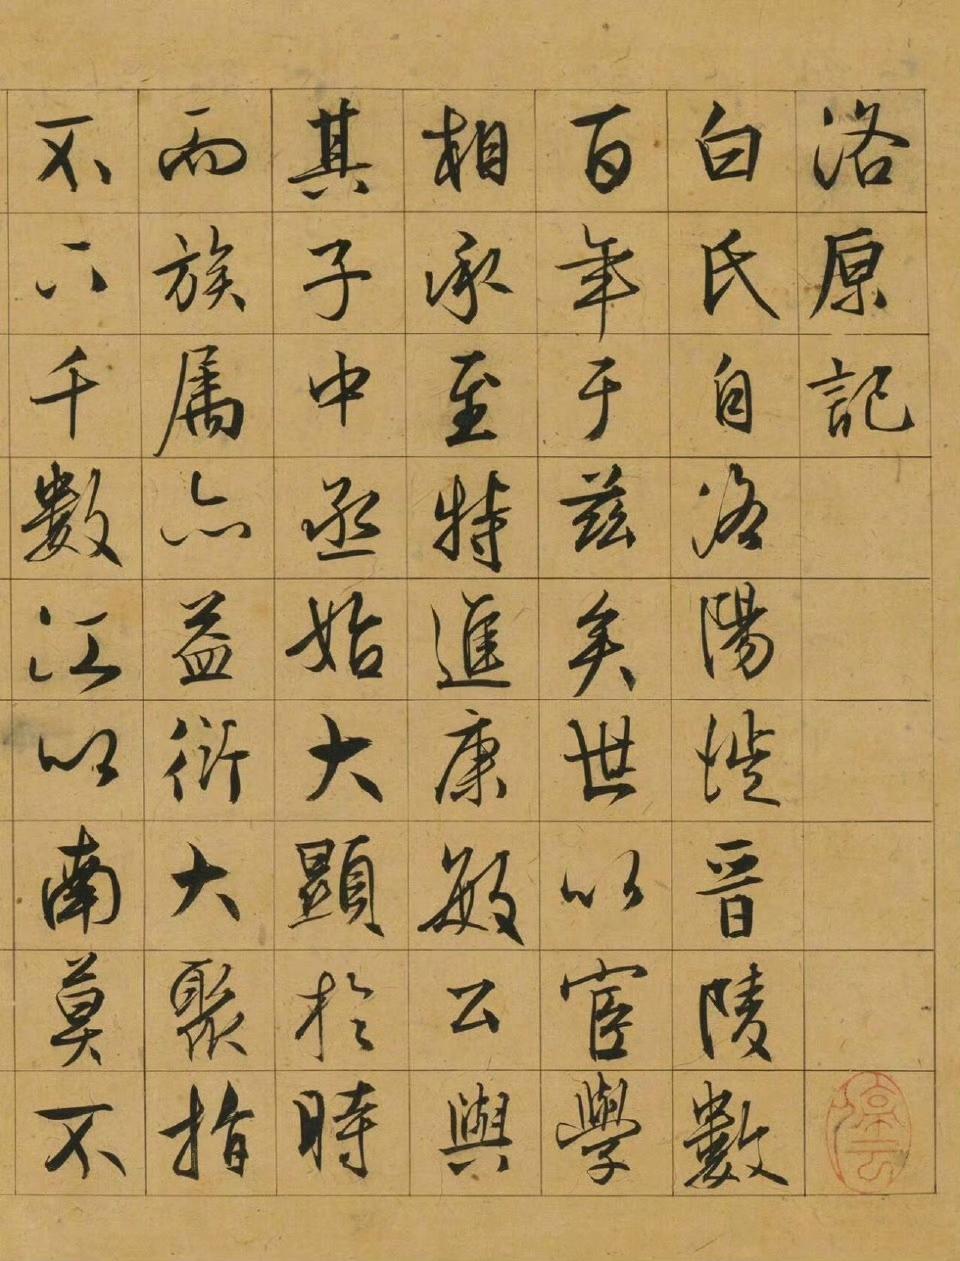 洛原記
白氏自洛陽徙晉陵數
百年于茲矣世以宦學
相承至特進康敏公與
其子中丞始大顯於時
而族属亦益衍大聚指
不下千數江以南莫不
停云